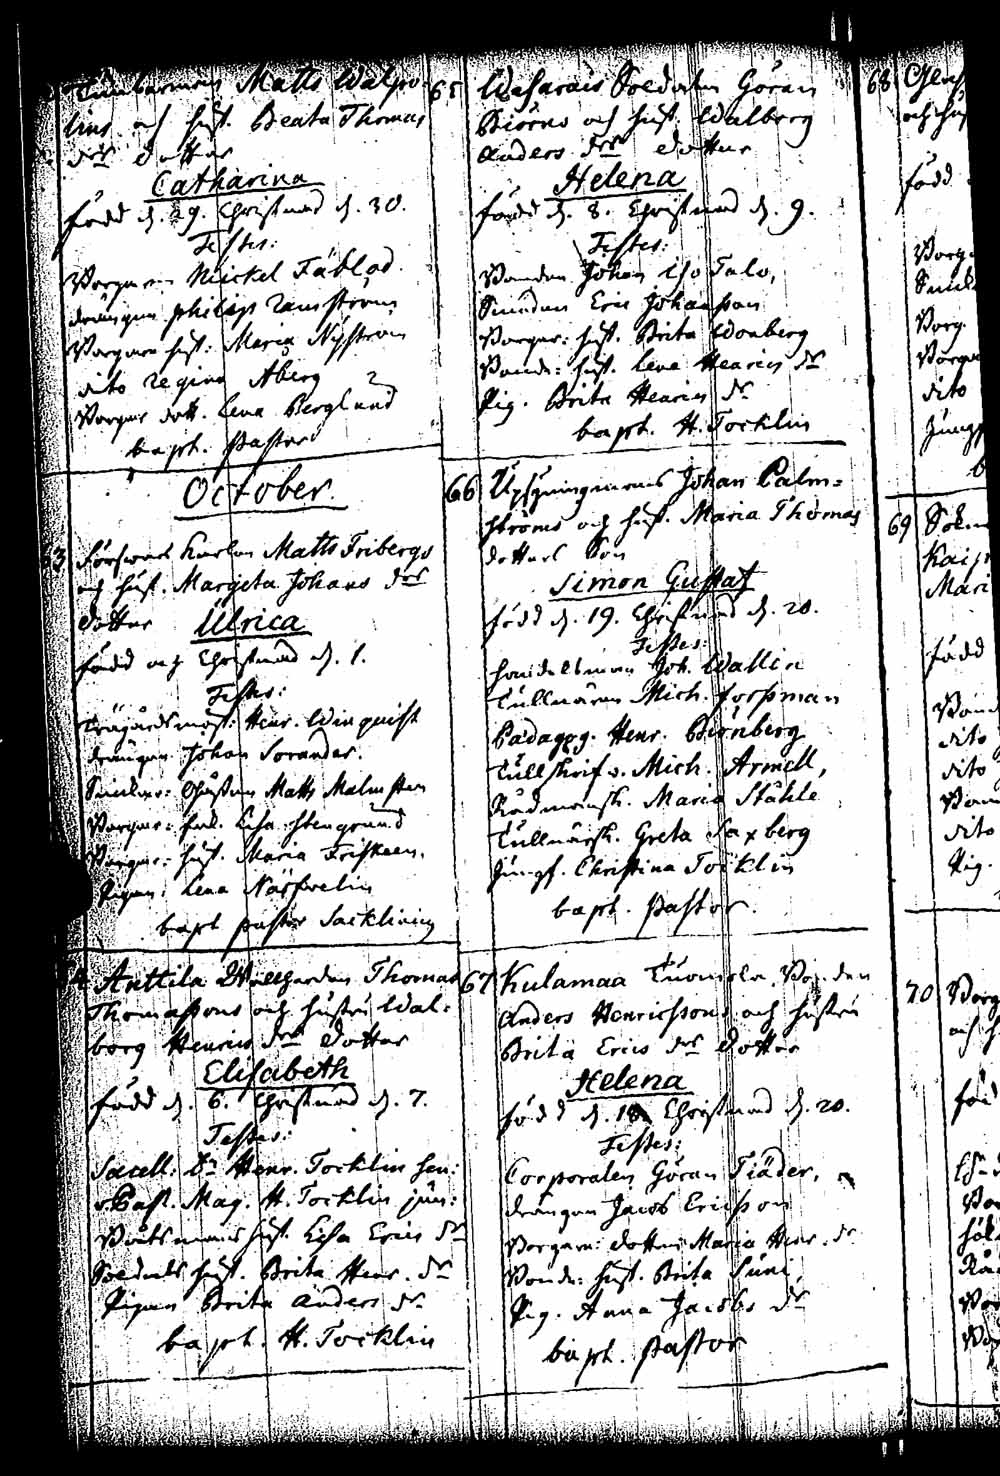 Timberman Matts Walpo-
lins och hust. Beata Thomas
drs dotter
Catharina
född d. 29. Christnad d. 30.
Testes:
Borgaren Mickel Fäblad
drängen philip Ramström
Borgare hust: Maria Nyström
dito Regina Åberg
Borgar dott. Lena Berglund
bapt. Pastor
October.
63 Förswars Karlen Matts Fribergs
och hust. Margeta Johans drs
dotter Ulrica
född och Christnad d. 1.
Testes:
Trägårdsmäst: Henr. Winquist
drängen Johan Sorander.
Matts Malmsten
Borgar: Lisa Stengrund
Borgar: hust. Maria Friskeen.
Pigan: Lena Näsfwelin
bapt pastor Sacklinius
64 Anttila Thomas
Thomassons och hustru Wal-
borg Henrics drs dotter
Elisabeth
född d. 6. Christnad d. 7.
Testes:
Sacell: Dn Henr. Tocklin sen:
v. Past. Mag. H. Tocklin jun:
Båtsmans hust. Lisa Erics dr
Soldats hust. Brita Henr. dr
Pigan Brita Anders dr
bapt. H. Tocklin
65 Wasarais Soldaten Göran
Biörns och hust. Walborg
Anders drs dotter
Helena
född d. 8. Christnad d. 9.
Testes:
Bonden Johan Iso Talo,
Smeden Eric Johansson
Borgar: hust. Brita Wonberg
Bonde: hust. Lena Henrics dr
Pig. Brita Henrics dr
bapt. H. Tocklin
66 Johan Palm-
ströms och hust. Maria Thomas
dotters Son
Simon Gustaf
född d. 19. Christnad d. 20.
Testes:
Handelsman Joh. Wallin
Tullnären Mich. Forssman
Pädagog. Henr. Biörnberg
Tullskrifv. Mich. Armell,
Rådmansh. Maria Ståhle
Tullnärsh. Greta Saxberg
Jungf. Christina Tocklin
bapt. Pastor.
67 Kulamaa Tuomola Bonden
Anders Henricssons och hustru
Brita Erics drs dotter
Helena
född d. 18 Christnad d. 20.
Testes:
Corporalen Göran Tiäder,
drängen Jacob Ericsson
Borgare: dotter Maria Henr. dr
Bonde: hust. Brita Suni,
Pig. Anna Jacobs dr
bapt. Pastor
68
och hus
född
Borga
Borg.
Borgar
dito
Jungf
69
Mari
född
Bond
dito
dito
Bon
dito
Pig.
70 Borg
och h
föd
Bo